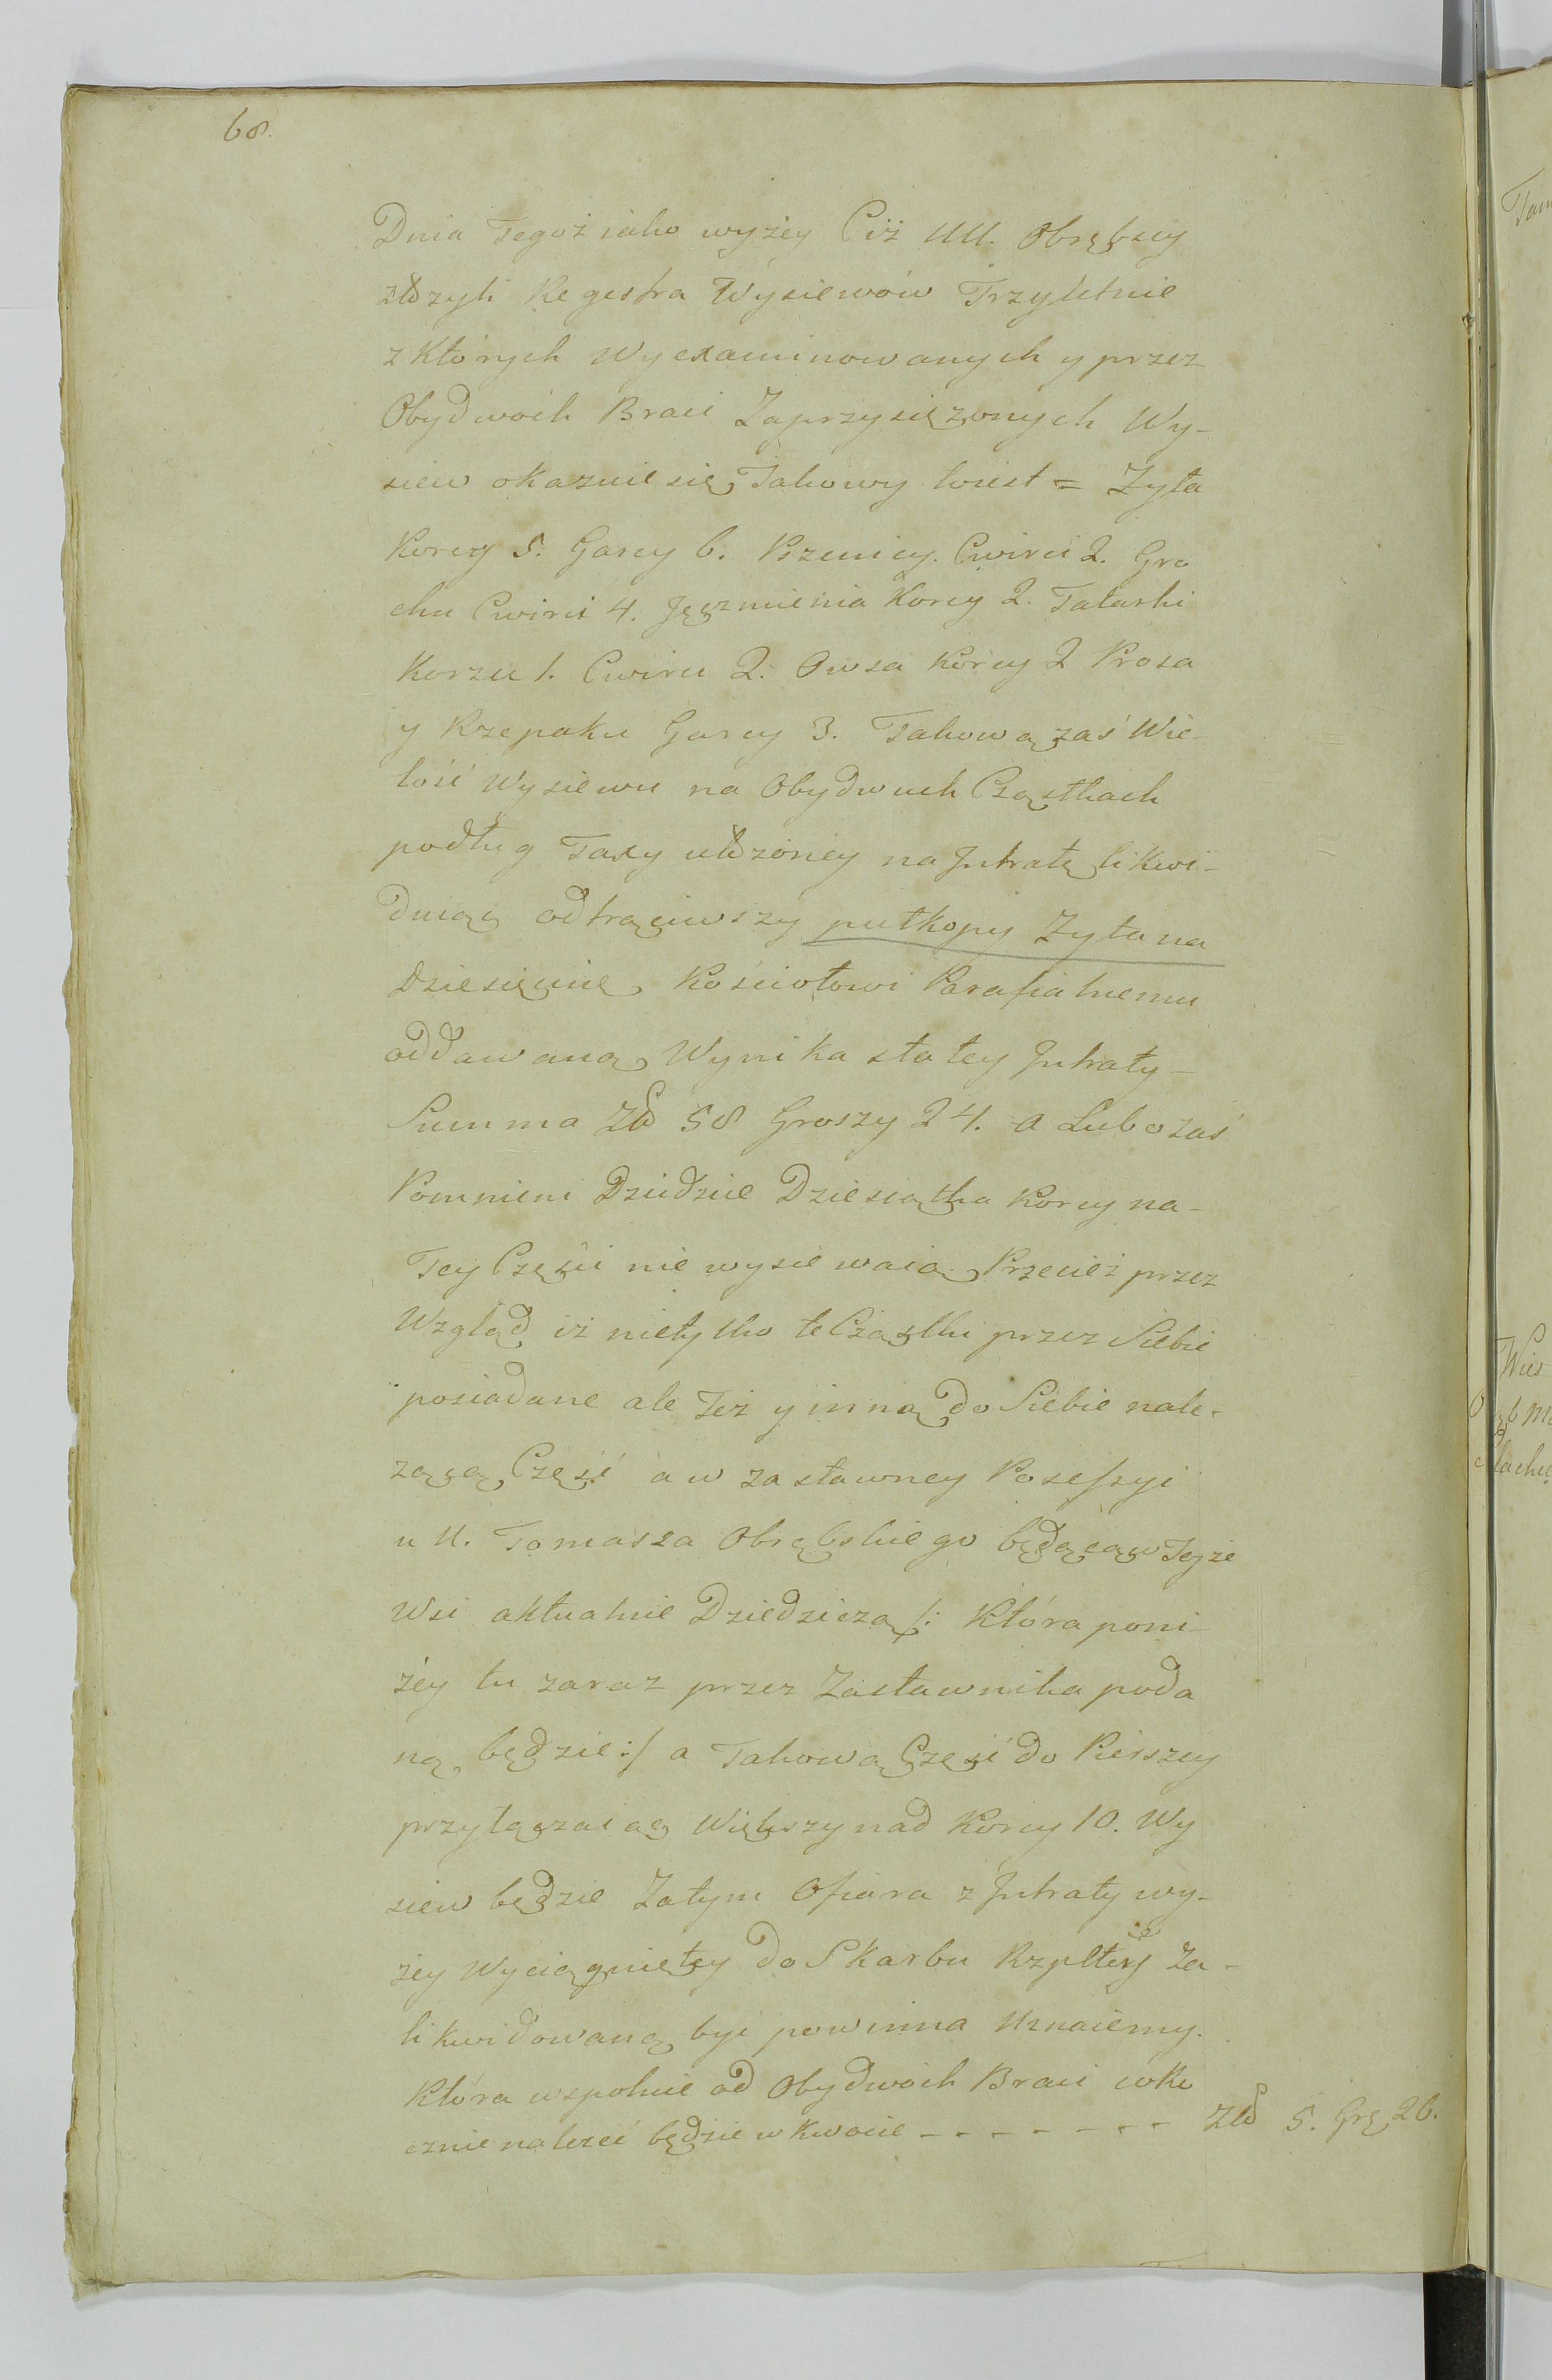 68.
Dnia Tegoż iako wyżey Ciż UU. Obrębscy
złożyli Regestra Wysiewów Trzyletnie
z których Wyexaminowanych y przez
Obydwóch Braci Zaprzysiężonych Wy-
siew okazuie się Takowy to iest = Zyta
Korcy 5. Garcy 6. Pszenicy. Cwierci 2. Gro
chu Cwierci 4. Jęczmienia Korcy 2. Tatarki
Korzec 1. Cwierci 2. Owsa Korcy 2 Prosa
y Rzepaku Garcy 3. Takową zaś Wie-
lość Wysiewu na Obydwuch Cząstkach
podług Taxy ułożoney na Intratę likwi-
duiąc odtrąciwszy pułkopy Zyta na
Dziesięcinę Kościołowi Parafialnemu
oddawaną Wynika stałey Intraty -
Summa Zł 58 Groszy 24. a Lubo zaś
Pomnieni Dziedzice Dziesiątka Korcy na-
Tey Części nie wysiewaią Przecież przez
Wzgląd iż nietylko te Cząstki przez Siebie
posiadane ale Też y inną do Siebie nale-
żącą Część a w zastawney Possessyi
u U. Tomasza Obrębskiego będącą w Teyże
Wsi aktualnie Dziedziczą /: Która poni-
żey tu zaraz przez Zastawnika poda
ną będzie :/ a Takową Część do Pierszey
przyłączaiąc Większy nad Korcy 10. Wy
siew będzie Zatym Ofiara z Intraty wy-
żey Wyciągniętey do Skarbu Rzpltey Za-
likwidowaną być powinna Uznaiemy.
Która wspolnie od Obydwóch Braci
cznie należeć będzie w Kwocie - - - - - - - Zł 5. Gr 26.